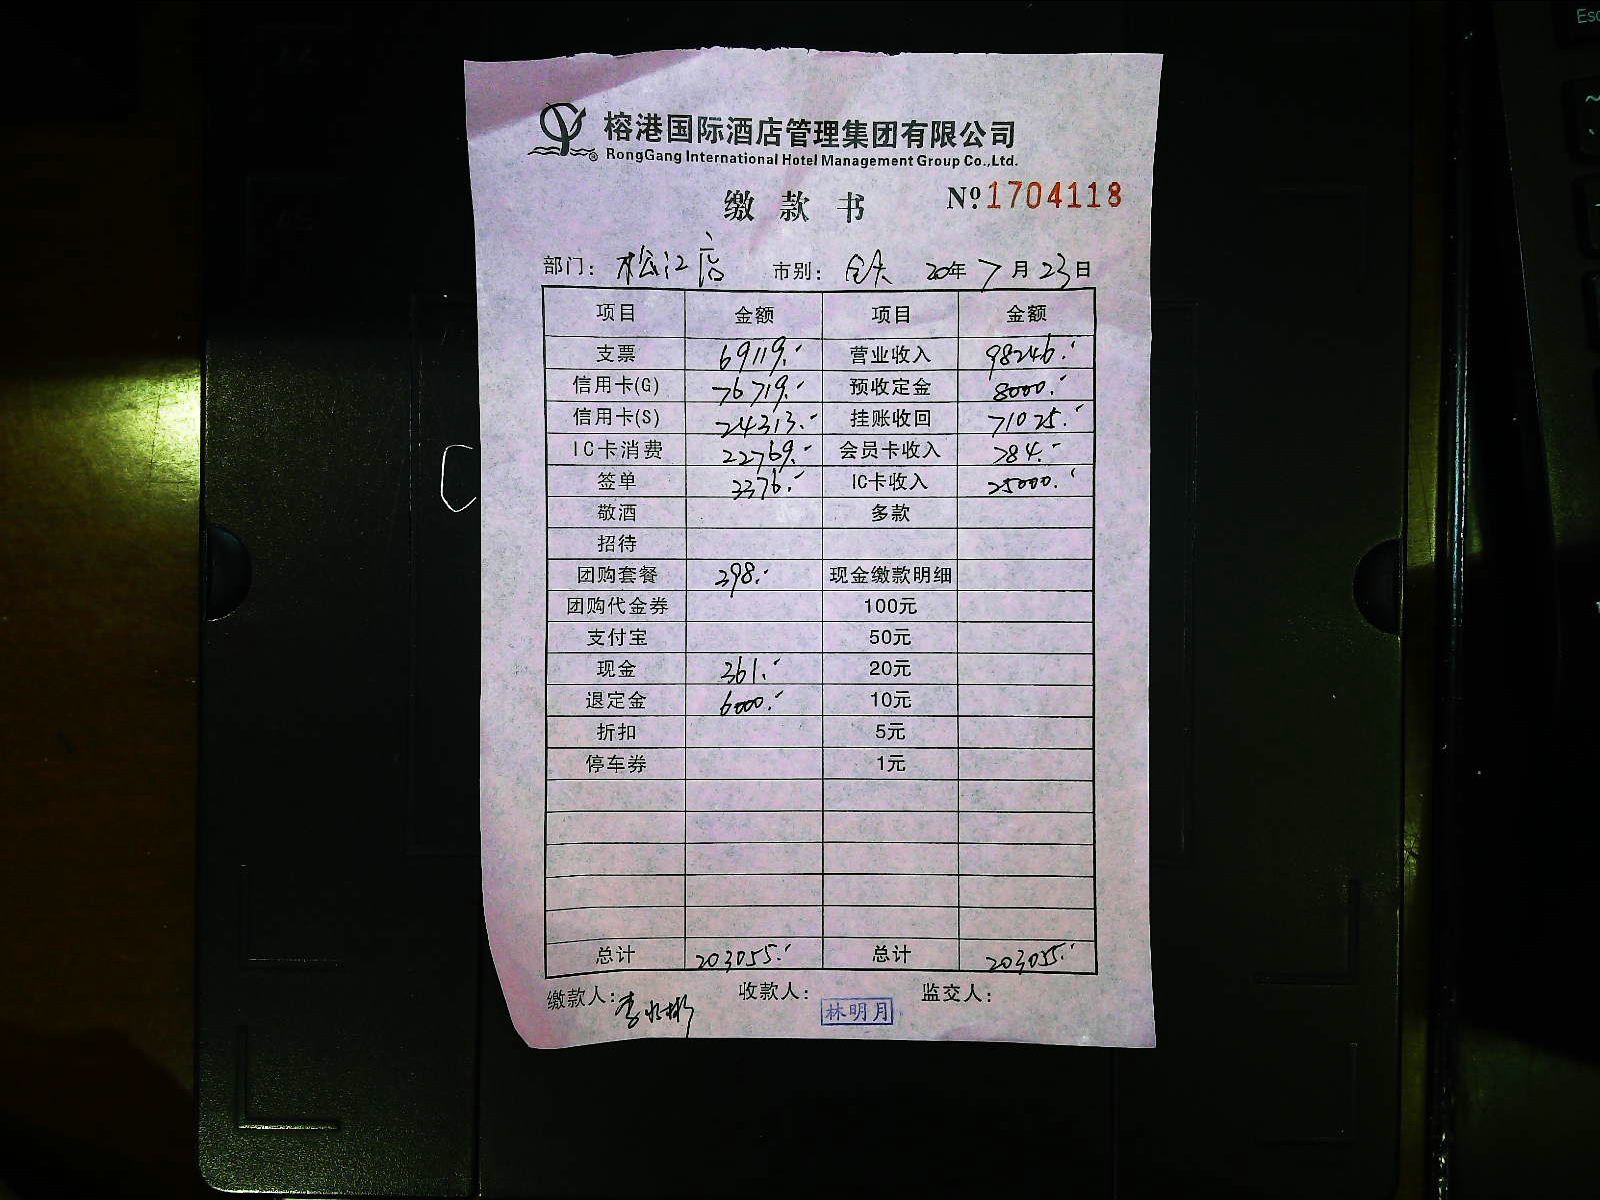 榕港国际酒店管理集团有限公司
RongGang International Hotel Management Group Co.,Ltd.
缴款书 Nº 1704118
部门: 松江店 市别: 全天 20年 7月 23日
项目 金额 项目 金额
支票 69119.- 营业收入 98246.-
信用卡(G) 76719.- 预收定金 8000.-
信用卡(S) 24313.- 挂账收回 71025.-
IC卡消费 22769.- 会员卡收入 784.-
签单 3376.- IC卡收入 25000.-
敬酒 多款
招待
团购套餐 398.- 现金缴款明细
团购代金券 100元
支付宝 50元
现金 361.- 20元
退定金 6000.- 10元
折扣 5元
停车券 1元
总计 203055.- 总计 203055.-
缴款人: 收款人: 林明月 监交人:
Esc